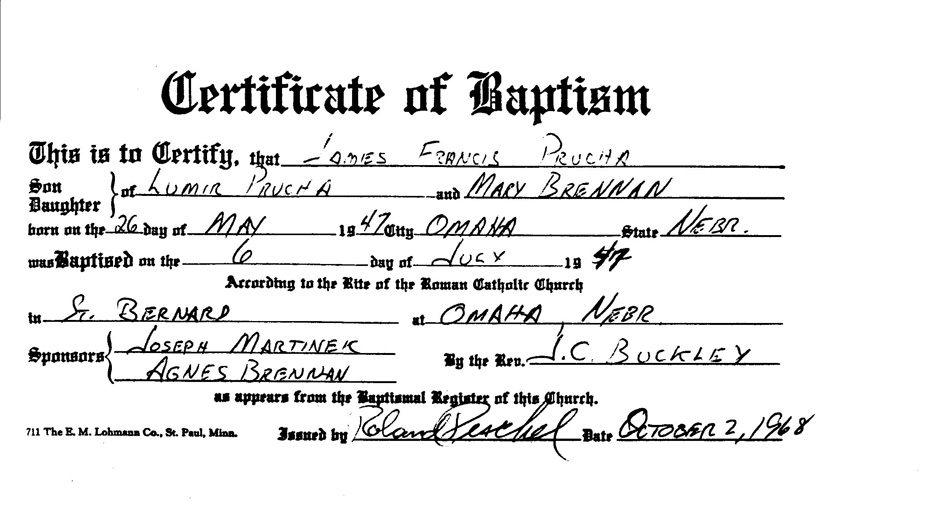 Certificate of Baptism
This is to Certify, that James Francis Prucha
Son
Daughter } of Lumir Prucha and Mary Brennan
born on the 26 day of May 1947 City Omaha State Nebr.
was Baptised on the 6 day of July 1947
According to the Rite of the Roman Catholic Church
in St. Bernard at Omaha, Nebr.
Sponsors { Joseph Martinek By the Rev. J.C. Buckley
Agnes Brennan
as appears from the Baptismal Register of this Church.
711 The E. M. Lohmann Co., St. Paul, Minn. Issued by Roland Peschel Date October 2, 1968